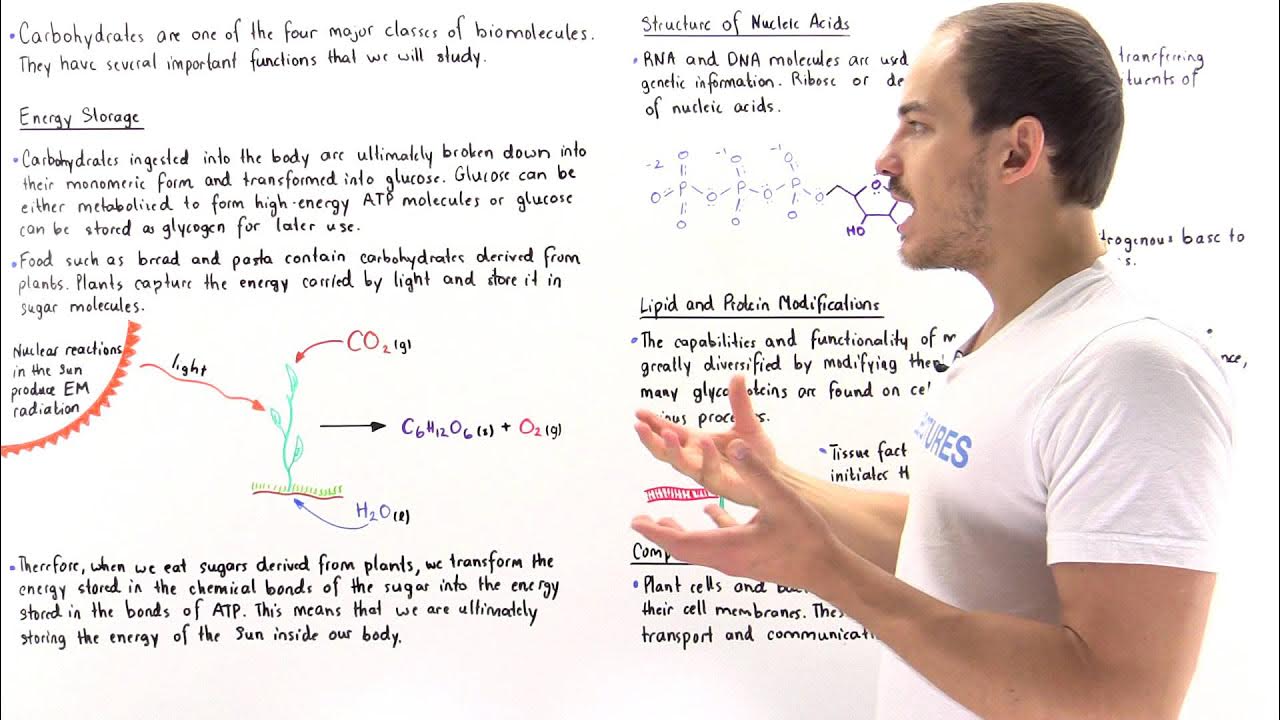 • Carbohydrates are one of the four major classes of biomolecules.
They have several important functions that we will study.
Energy Storage
• Carbohydrates ingested into the body are ultimately broken down into
their monomeric form and transformed into glucose. Glucose can be
either metabolized to form high-energy ATP molecules or glucose
can be stored as glycogen for later use.
• Food such as bread and pasta contain carbohydrates derived from
plants. Plants capture the energy carried by light and store it in
sugar molecules.
Nuclear reactions
in the Sun
produce EM
radiation
light
CO2 (g)
C6H12O6 (s) + O2 (g)
H2O (l)
• Therefore, when we eat sugars derived from plants, we transform the
energy stored in the chemical bonds of the sugar into the energy
stored in the bonds of ATP. This means that we are ultimately
storing the energy of the Sun inside our body.
Structure of Nucleic Acids
• RNA and DNA molecules are used transferring
genetic information. Ribose or
of nucleic acids.
-2 O -1 O -1 O
O P O P O P O O
O O O
HO
base to
Lipid and Protein Modifications
• The capabilities and functionality of
greatly diversified by modifying
many are found on
• Tissue
initiates
• Plant cells and
their cell membranes.
transport and
URES